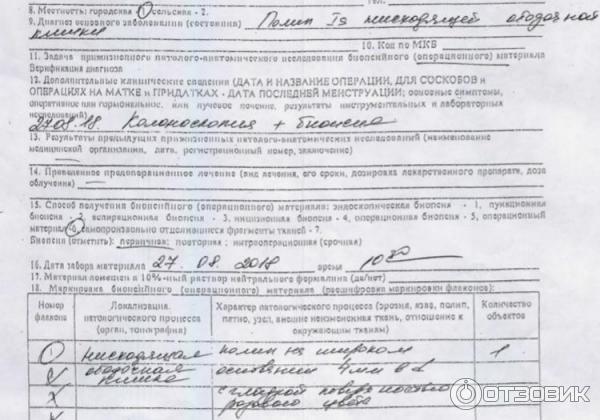 8. Местность: городская - 1, сельская - 2.
9. Диагноз основного заболевания (состояния) Полип Iя нисходящей ободочной
кишки
10. Код по МКБ
11. Задача прижизненного патолого-анатомического исследования биопсийного (операционного) материала
Верификация диагноза
12. Дополнительные клинические сведения (ДАТА И НАЗВАНИЕ ОПЕРАЦИИ, ДЛЯ СОСКОБОВ и
ОПЕРАЦИЯХ НА МАТКЕ и ПРИДАТКАХ - ДАТА ПОСЛЕДНЕЙ МЕНСТРУАЦИИ; основные симптомы,
оперативное или гормональное, или лучевое лечение, результаты инструментальных и лабораторных
исследований)
27.08.18. Колоноскопия + биопсия
13. Результаты предыдущих прижизненных патолого-анатомических исследований (наименование
медицинской организации, дата, регистрационный номер, заключение)
14. Проведенное предоперационное лечение (вид лечения, его сроки, дозировка лекарственного препарата, доза
облучения)
15. Способ получения биопсийного (операционного) материала: эндоскопическая биопсия - 1, пункционная
биопсия - 2, аспирационная биопсия - 3, инцизионная биопсия - 4, операционная биопсия - 5, операционный
материал -6, самопроизвольно отделившиеся фрагменты тканей - 7.
Биопсия (отметить): первичная; повторная; интраоперационная (срочная)
16. Дата забора материала 27. 08. 2018 время 10
17. Материал помещен в 10%-ный раствор нейтрального формалина (да/нет)
18. Маркировка биопсийного (операционного) материала (расшифровка маркировки флаконов):
Номер флакона Локализация патологического процесса (орган, топография) Характер патологического процесса (эрозия, язва, полип, пятно, узел, внешне неизмененная ткань, отношение к окружающим тканям) Количество объектов
1 нисходящая полип на широком 1
ободочная основании 4 мм в d
кишка
с гладкой поверхностью
розового цвета
ОТЗОВИК